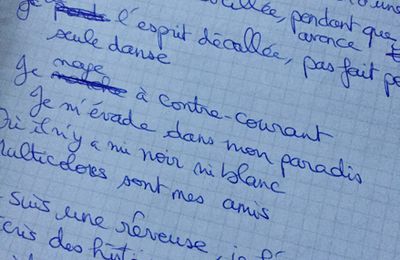 pendant que
l'esprit décallée, pas fait p
seule danse
Je nage à contre-courant
Je m'évade dans mon paradis
Où il n'y a ni noir ni blanc
Multicolores sont mes amis
suis une rêveuse, je
des